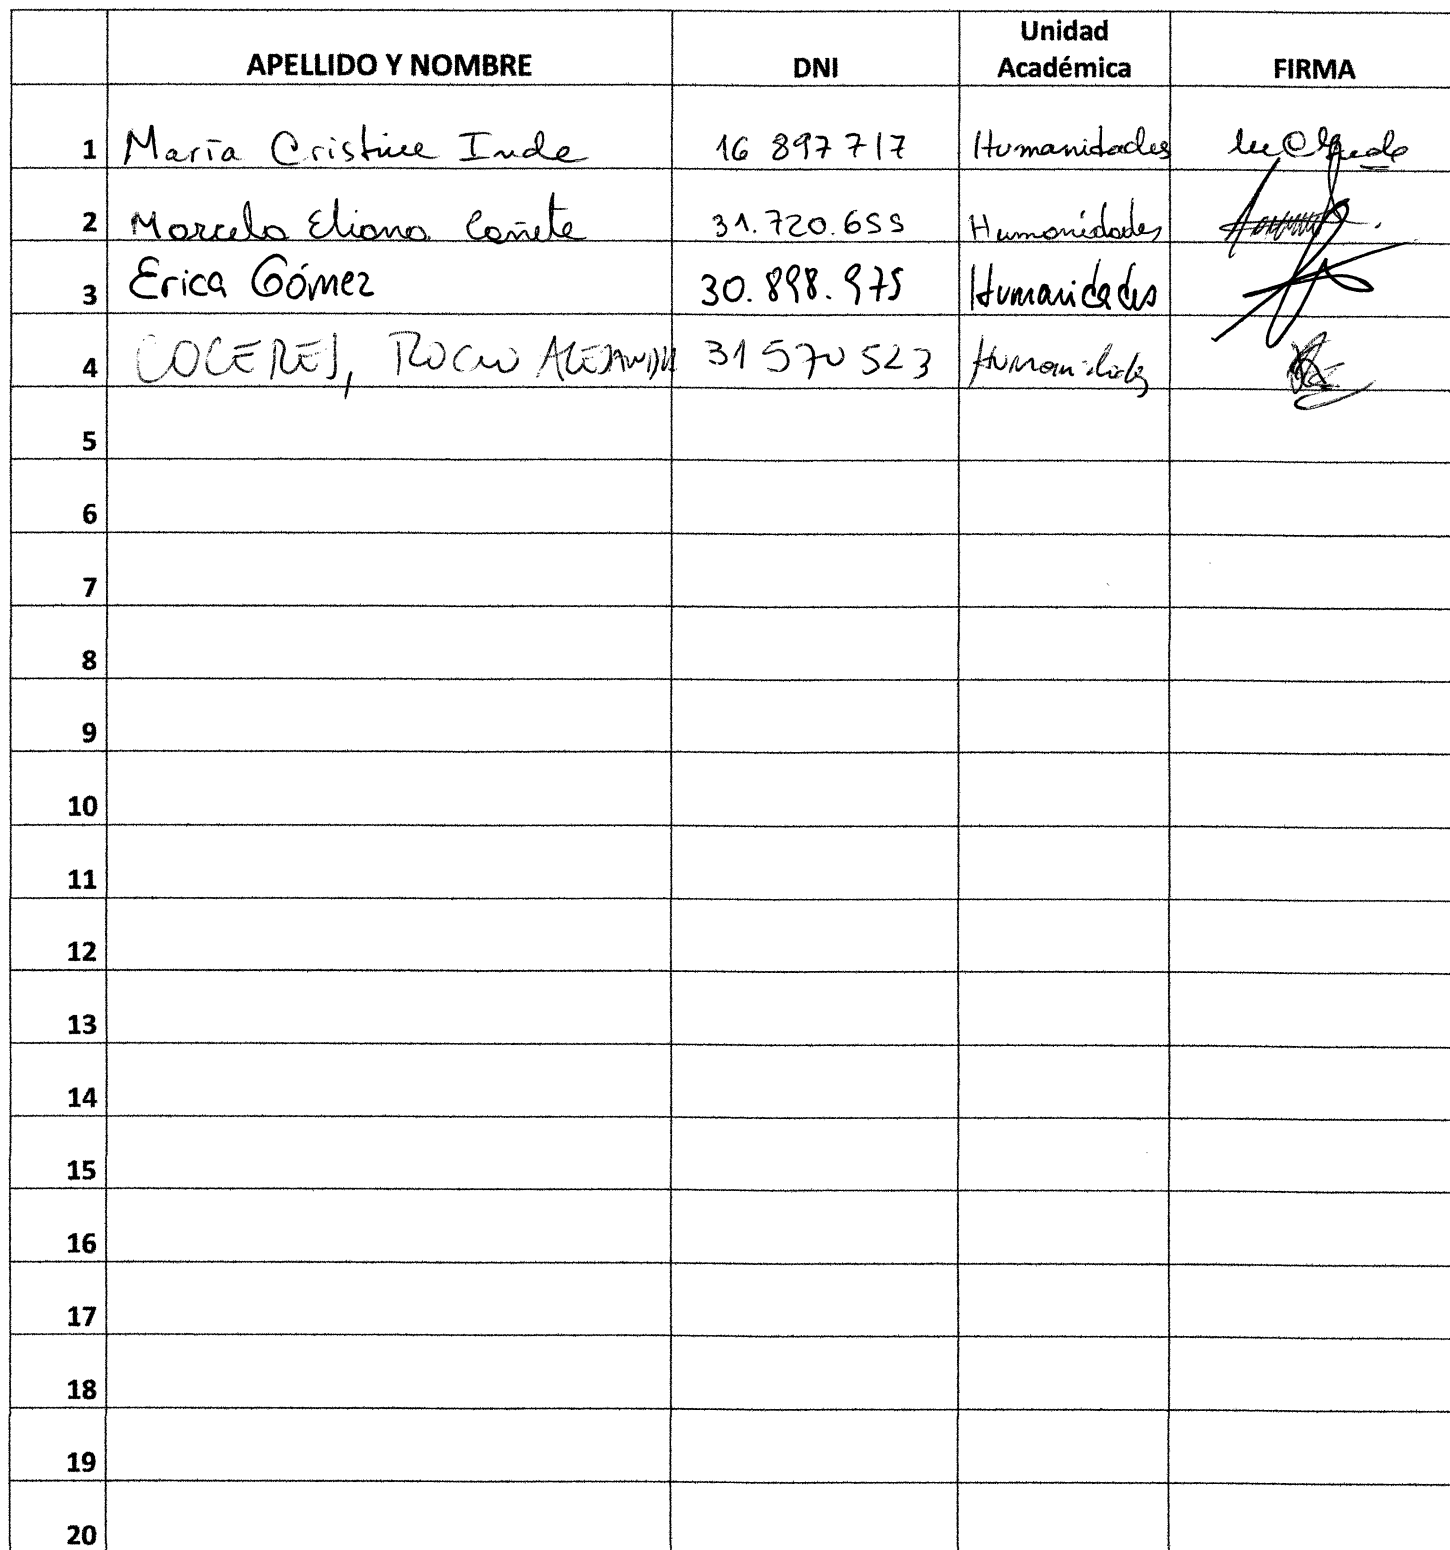 APELLIDO Y NOMBRE DNI Unidad Académica FIRMA
1 María Cristina Inde 16 897 717 Humanidades
2 Marcela Eliana Cañete 31.720.655 Humanidades
3 Erica Gómez 30.898.975 Humanidades
4 COCERES, ROCIO ALEJANDRA 31 570 523 Humanidades
5
6
7
8
9
10
11
12
13
14
15
16
17
18
19
20